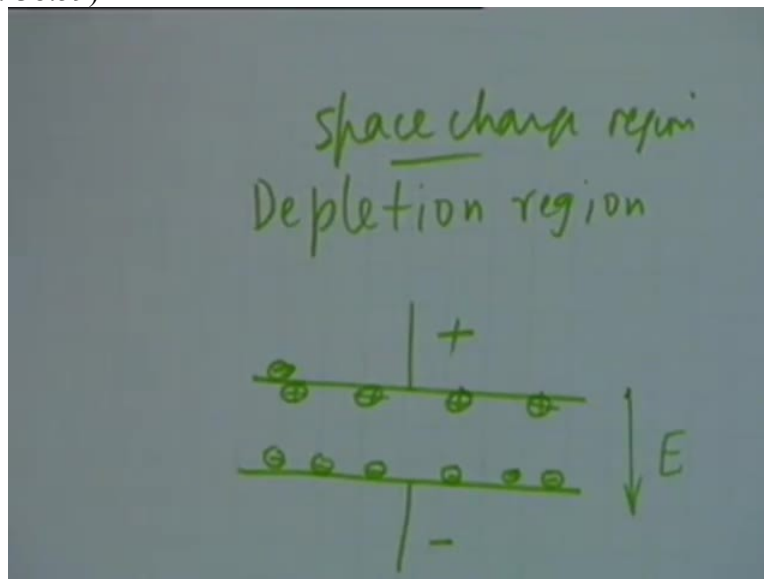 space charge region
Depletion region
+
E
-